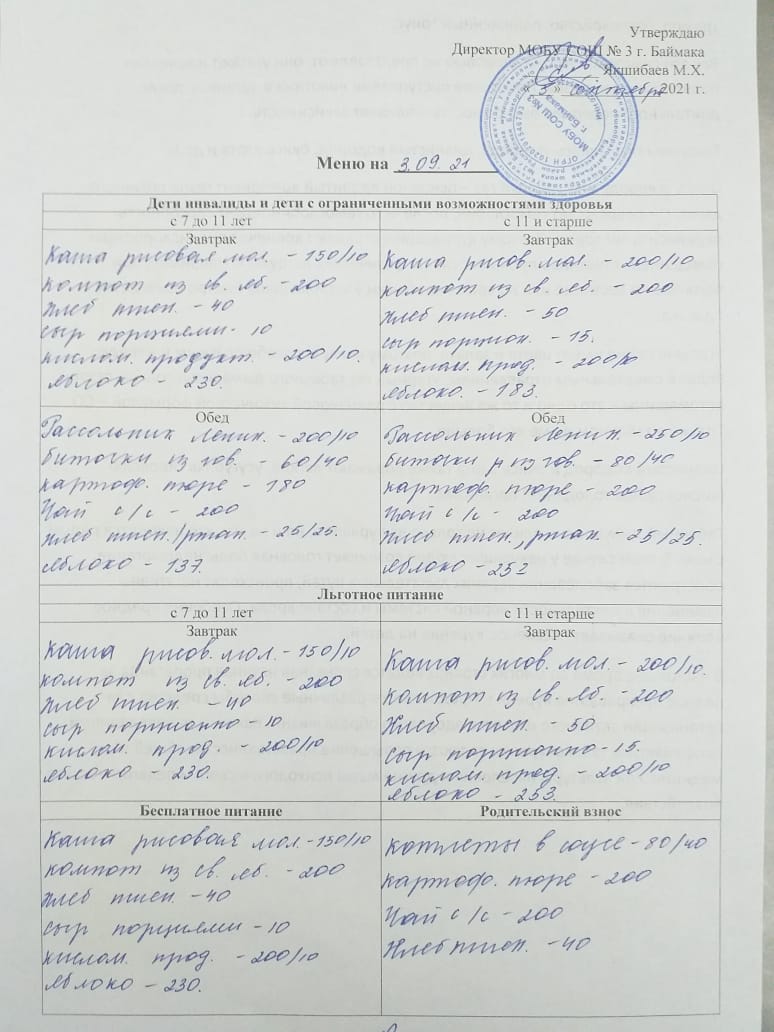 Утверждаю
Директор МОБУ СОШ № 3 г. Баймака
Якшибаев М.Х.
« 3 » сентября 2021 г.
МОБУ СОШ №3
г. Баймака
Меню на 3.09.21
Дети инвалиды и дети с ограниченными возможностями здоровья
с 7 до 11 лет
Завтрак
Каша рисовая мол. - 150/10
компот из св. яб. - 200
хлеб пшен. - 40
сыр порциями - 10
кислом. продукт. - 200/10.
яблоко - 230.
с 11 и старше
Завтрак
Каша рисов. мол. - 200/10
компот из св. яб. - 200
хлеб пшен. - 50
сыр порцион. - 15.
кислом. прод. - 200/10
яблоко. - 183.
Обед
Рассольник Ленин. - 200/10
биточки из гов. - 60/40
картоф. пюре - 180
Чай с/с - 200
хлеб пшен./ржан. - 25/25.
яблоко - 137.
Обед
Рассольник Ленин. - 250/10
биточки р из гов. - 80/40
картоф. пюре - 200
Чай с/с - 200
Хлеб пшен, ржан. - 25/25.
яблоко - 252
Льготное питание
с 7 до 11 лет
Завтрак
Каша рисов. мол. - 150/10
компот из св. яб. - 200
хлеб пшен. - 40
сыр порционно - 10
кислом. прод. - 200/10
яблоко - 230.
с 11 и старше
Завтрак
Каша рисов. мол. - 200/10.
компот из св. яб. - 200
Хлеб пшен. - 50
сыр порционно - 15.
кислом. прод. - 200/10
яблоко - 253.
Бесплатное питание
Каша рисовая мол. - 150/10
компот из св. яб. - 200
хлеб пшен. - 40
сыр порциями - 10
кислом. прод. - 200/10
яблоко - 230.
Родительский взнос
котлеты в соусе - 80/40
картоф. пюре - 200
Чай с/с - 200
Хлеб пшен. - 40